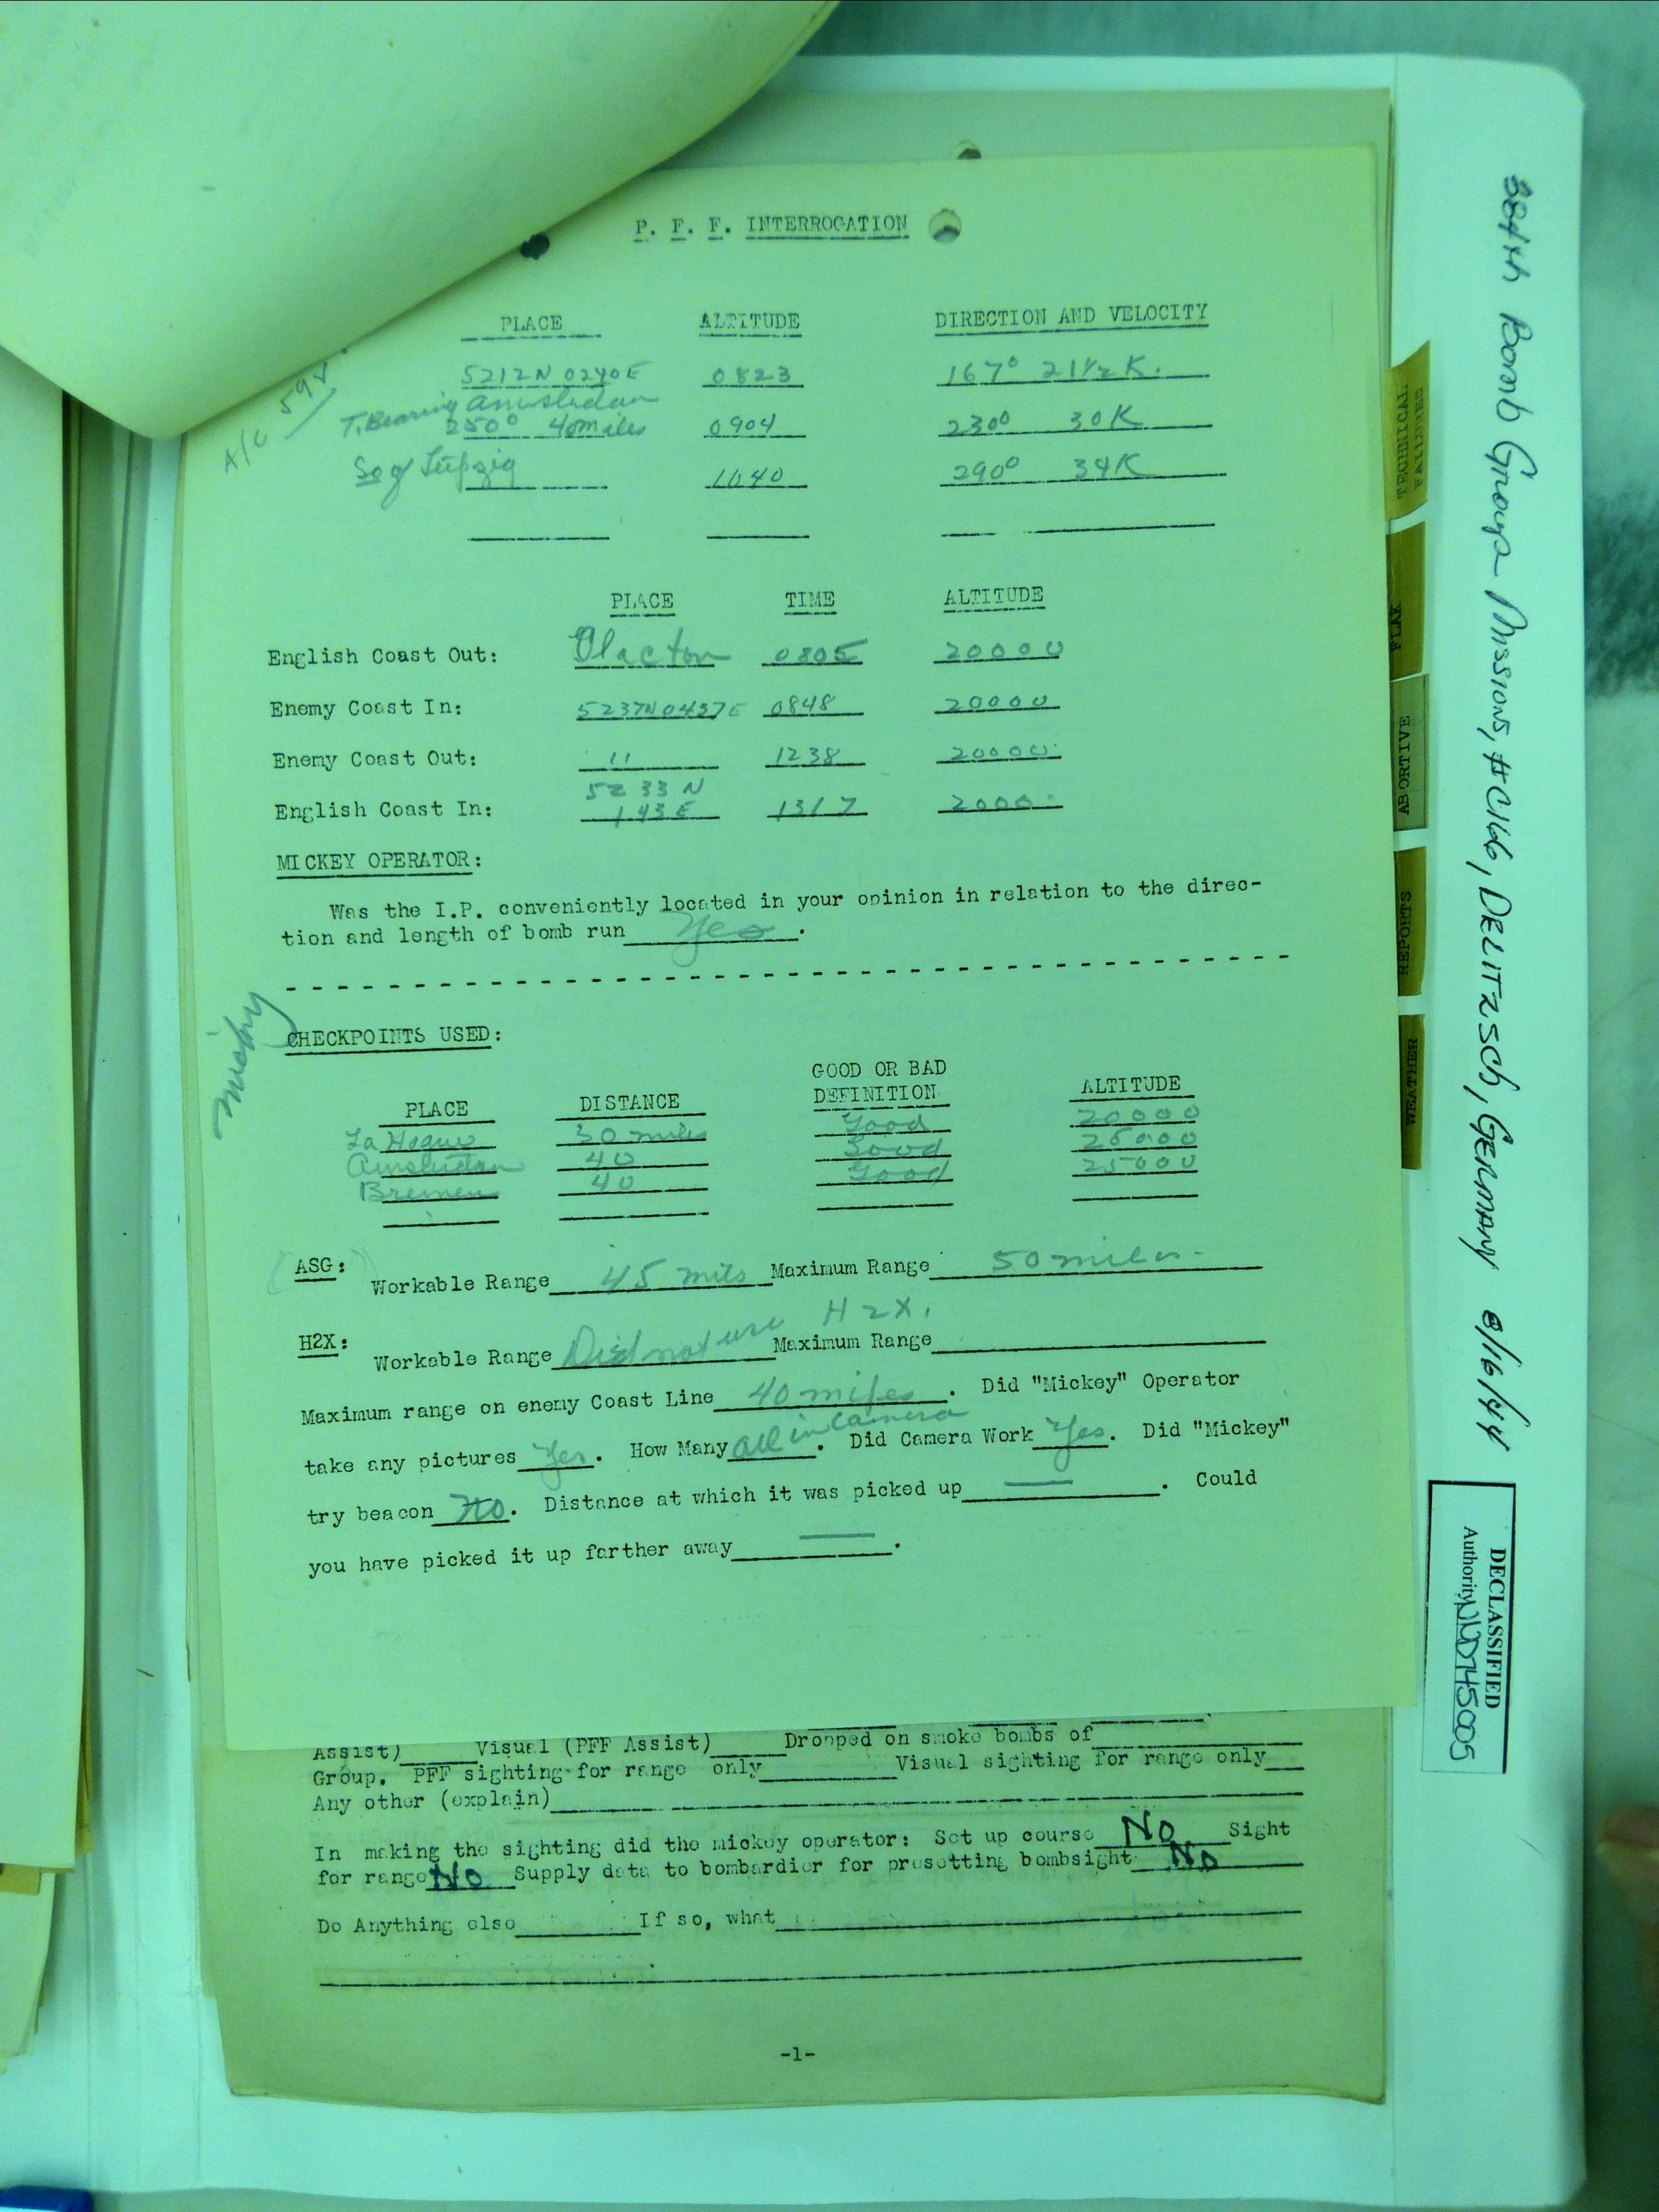 P. F. F. INTERROGATION
PLACE ALTITUDE DIRECTION AND VELOCITY
A/C 594
5212N 0240E 0823 167° 21½ K.
T. Bearing Amsterdam
250° 40 miles 0904 230° 30K
So of Leipzig 1040 290° 34K
PLACE TIME ALTITUDE
English Coast Out: Clacton 0805 20000
Enemy Coast In: 5237N0437E 0848 20000
Enemy Coast Out: " 1238 20000
5233 N
English Coast In: 143E 1317 2000
MICKEY OPERATOR:
Was the I.P. conveniently located in your opinion in relation to the direc-
tion and length of bomb run Yes.
CHECKPOINTS USED:
GOOD OR BAD
PLACE DISTANCE DEFINITION ALTITUDE
La Hague 30 miles Good 20000
Amsterdam 40 Good 25000
Bremen 40 Good 25000
ASG: Workable Range 45 miles Maximum Range 50 miles.
H2X: Workable Range Did not use H2X. Maximum Range
Maximum range on enemy Coast Line 40 miles. Did "Mickey" Operator
take any pictures Yes. How Many all in camera. Did Camera Work Yes. Did "Mickey"
try beacon No. Distance at which it was picked up —. Could
you have picked it up farther away —.
Assist) Visual (PFF Assist) Dropped on smoke bombs of
Group. PFF sighting for range only Visual sighting for range only
Any other (explain)
In making the sighting did the mickey operator: Set up course No Sight
for range No Supply data to bombardier for presetting bombsight No
Do Anything else If so, what
-1-
384th Bomb Group Missions, #C166, DELITZSCH, GERMANY 8/16/44
TECHNICAL
FAILURES
FLAK
ABORTIVE
REPORTS
WEATHER
DECLASSIFIED
Authority NND745005